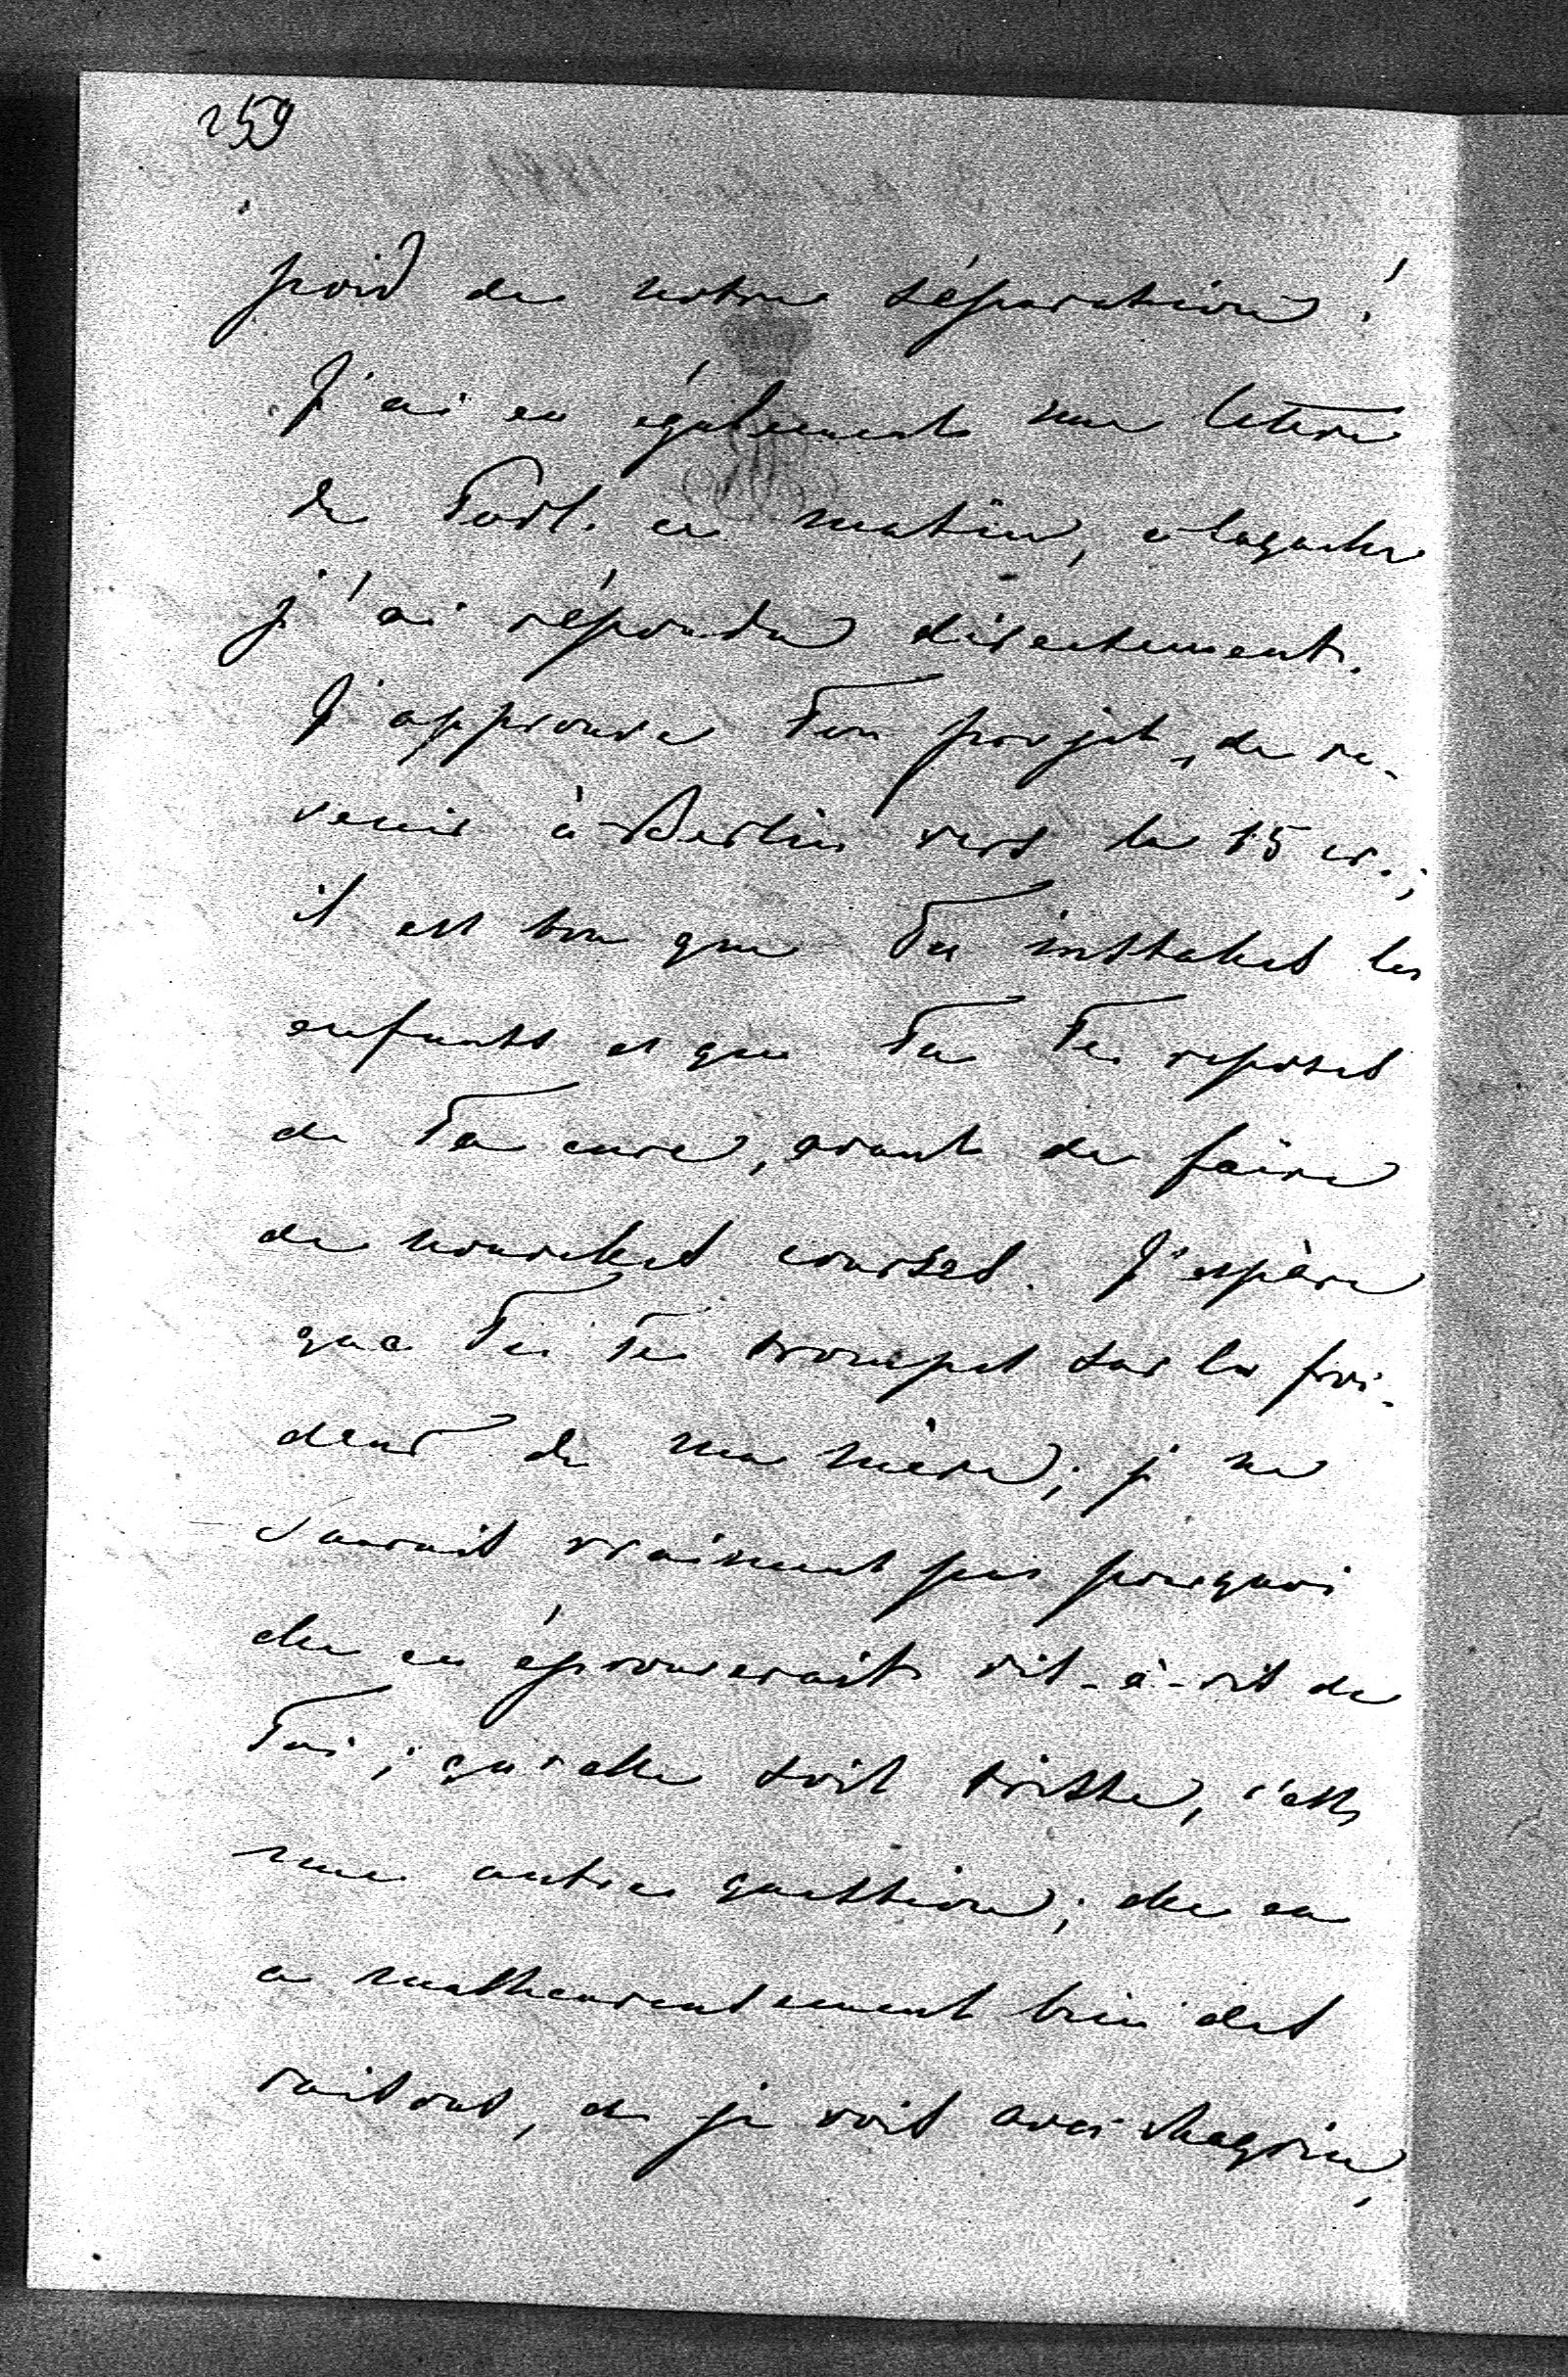 259
poid de notre séparation!
J'ai eu également une lettre
de ce matin, à laquelle
j'ai répondu directement.
J'approuve Ton projet, de re-
venir à Berlin vers le 15 cr.;
il est bon que Tu installes les
enfants et que Tu Te reposes
de Ta cure, avant de faire
de nouvelles courses. J'espère
que Tu Te trompes sur la froi-
deur de ma mère; je ne
saurais vraiment pas pourquoi
elle en éprouverait vis-à-vis de
Toi; qu'elle soit triste, c'est
une autre question; elle en
a malheureusement bien des
raisons, et je vois avec chagrin,